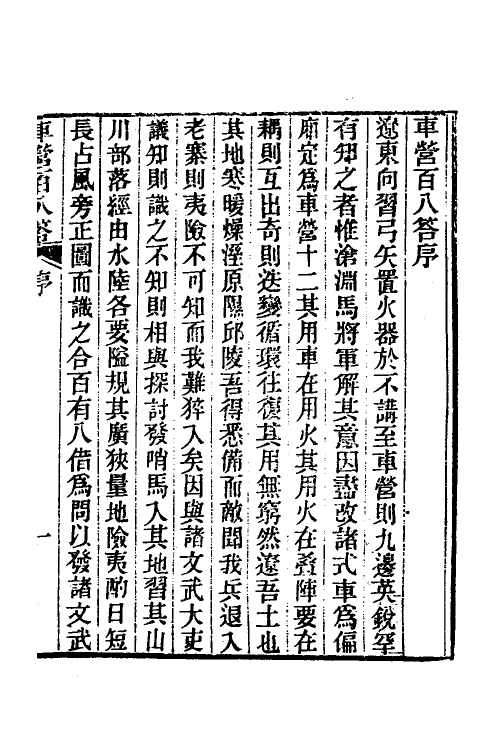 車營百八答序
遼東向習弓矢置火器於不講至車營則九邊英銳罕
有知之者惟滄淵馬將軍解其意因盡改諸式車為偏
廂定為車營十二其用車在用火其用火在疊陣要在
耦則互出奇則迭變循環往復其用無窮然遼吾土也
其地寒暖燥溼原隰邱陵吾得悉備而敵聞我兵退入
老寨則夷險不可知而我難猝入矣因與諸文武大吏
議知則識之不知則相與探討發哨馬入其地習其山
川部落經由水陸各要隘規其廣狹量地險夷酌日短
長占風旁正圖而識之合百有八借為問以發諸文武
車營百八答 序 一